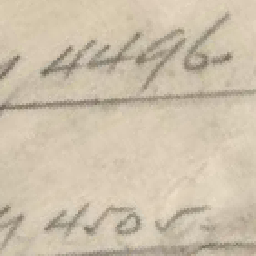 y 4496-
y 4505-